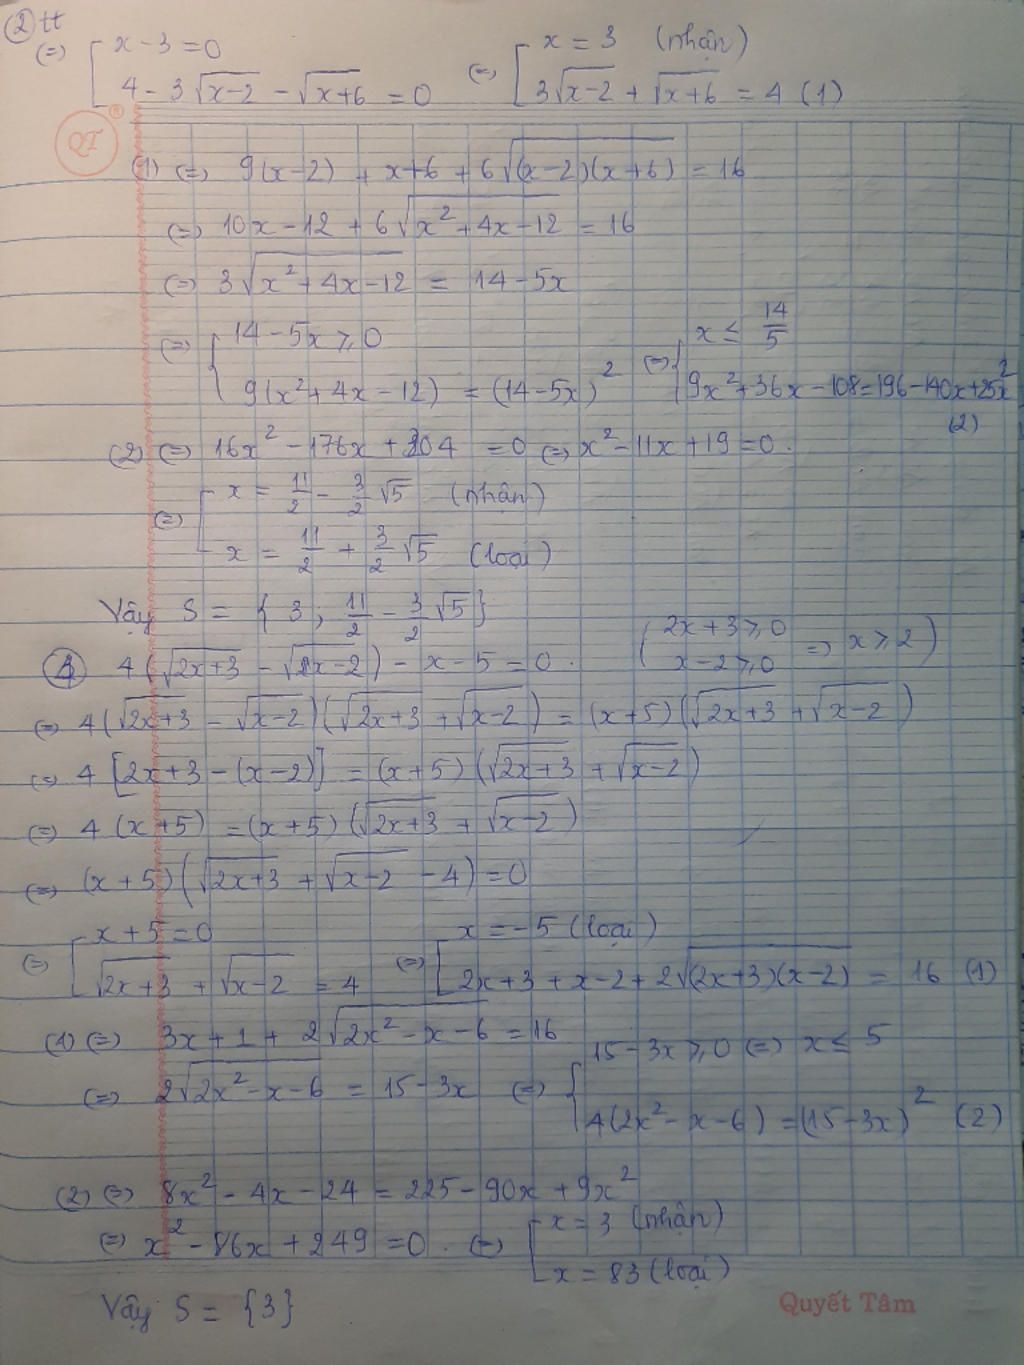 ② tt
(=) [ x - 3 = 0 (=) [ x = 3 (nhận)
4 - 3√(x-2) - √(x+6) = 0 3√(x-2) + √(x+6) = 4 (1)
QT ®
(1) (=) 9(x-2) + x+6 + 6√((x-2)(x+6)) = 16
(=) 10x - 12 + 6√(x² + 4x - 12) = 16
(=) 3√(x² + 4x - 12) = 14 - 5x
(=) { 14 - 5x ≥ 0 (=) { x ≤ 14/5
9(x² + 4x - 12) = (14 - 5x)² 9x² + 36x - 108 = 196 - 140x + 25x² (2)
(2) (=) 16x² - 176x + 304 = 0 (=) x² - 11x + 19 = 0.
(=) [ x = 11/2 - 3/2 √5 (nhận)
x = 11/2 + 3/2 √5 (loại)
Vậy S = { 3 ; 11/2 - 3/2 √5 }
④ 4(√(2x+3) - √(x-2)) - x - 5 = 0. ( 2x + 3 ≥ 0
x - 2 ≥ 0 => x ≥ 2 )
(=) 4(√(2x+3) - √(x-2))(√(2x+3) + √(x-2)) = (x+5)(√(2x+3) + √(x-2))
(=) 4 [2x+3 - (x-2)] = (x+5)(√(2x+3) + √(x-2))
(=) 4 (x+5) = (x+5)(√(2x+3) + √(x-2))
(=) (x+5)(√(2x+3) + √(x-2) - 4) = 0
(=) [ x + 5 = 0 (=) [ x = -5 (loại)
√(2x+3) + √(x-2) = 4 2x+3 + x-2 + 2√((2x+3)(x-2)) = 16 (1)
(1) (=) 3x + 1 + 2√(2x² - x - 6) = 16
(=) 2√(2x² - x - 6) = 15 - 3x (=) { 15 - 3x ≥ 0 (=) x ≤ 5
4(2x² - x - 6) = (15 - 3x)² (2)
(2) (=) 8x² - 4x - 24 = 225 - 90x + 9x²
(=) x² - 86x + 249 = 0. (=) [ x = 3 (nhận)
x = 83 (loại)
Vậy S = {3}
Quyết Tâm